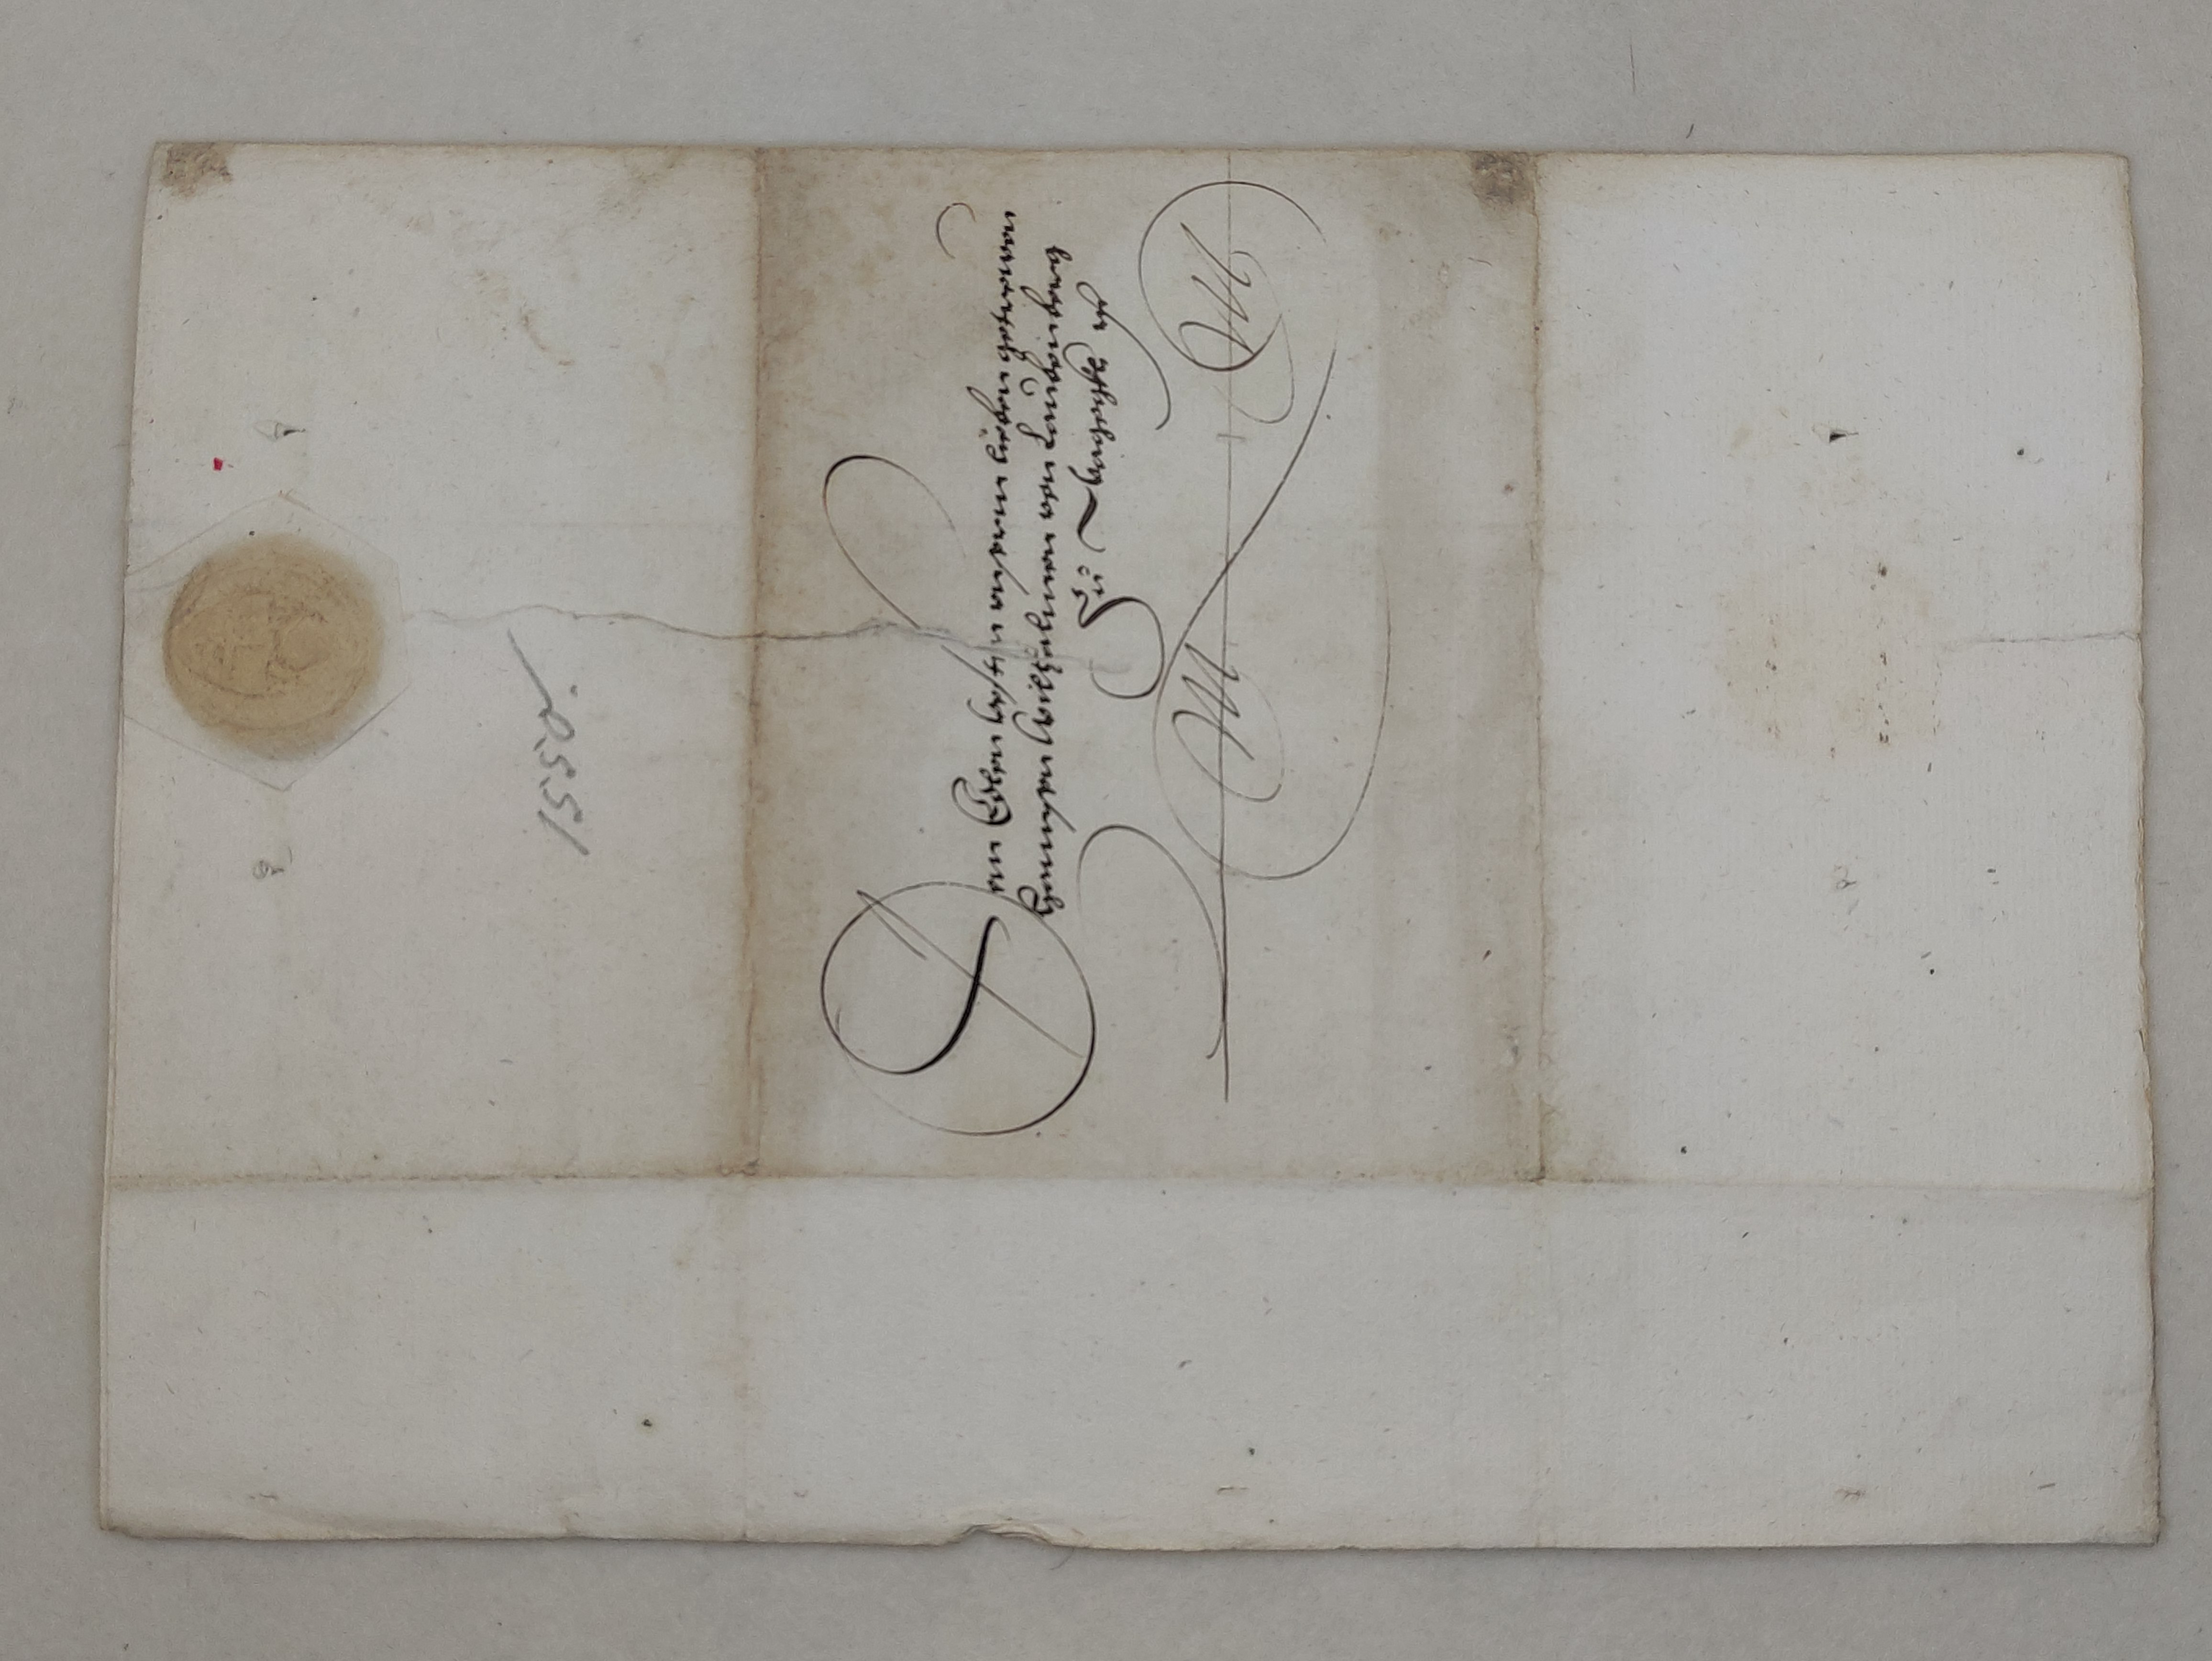 1550.
Dem Edlen vesten unserm lieben getrewen
Hannsen Wilhalmen von Laubenberg
Zu Wagegkh
M M